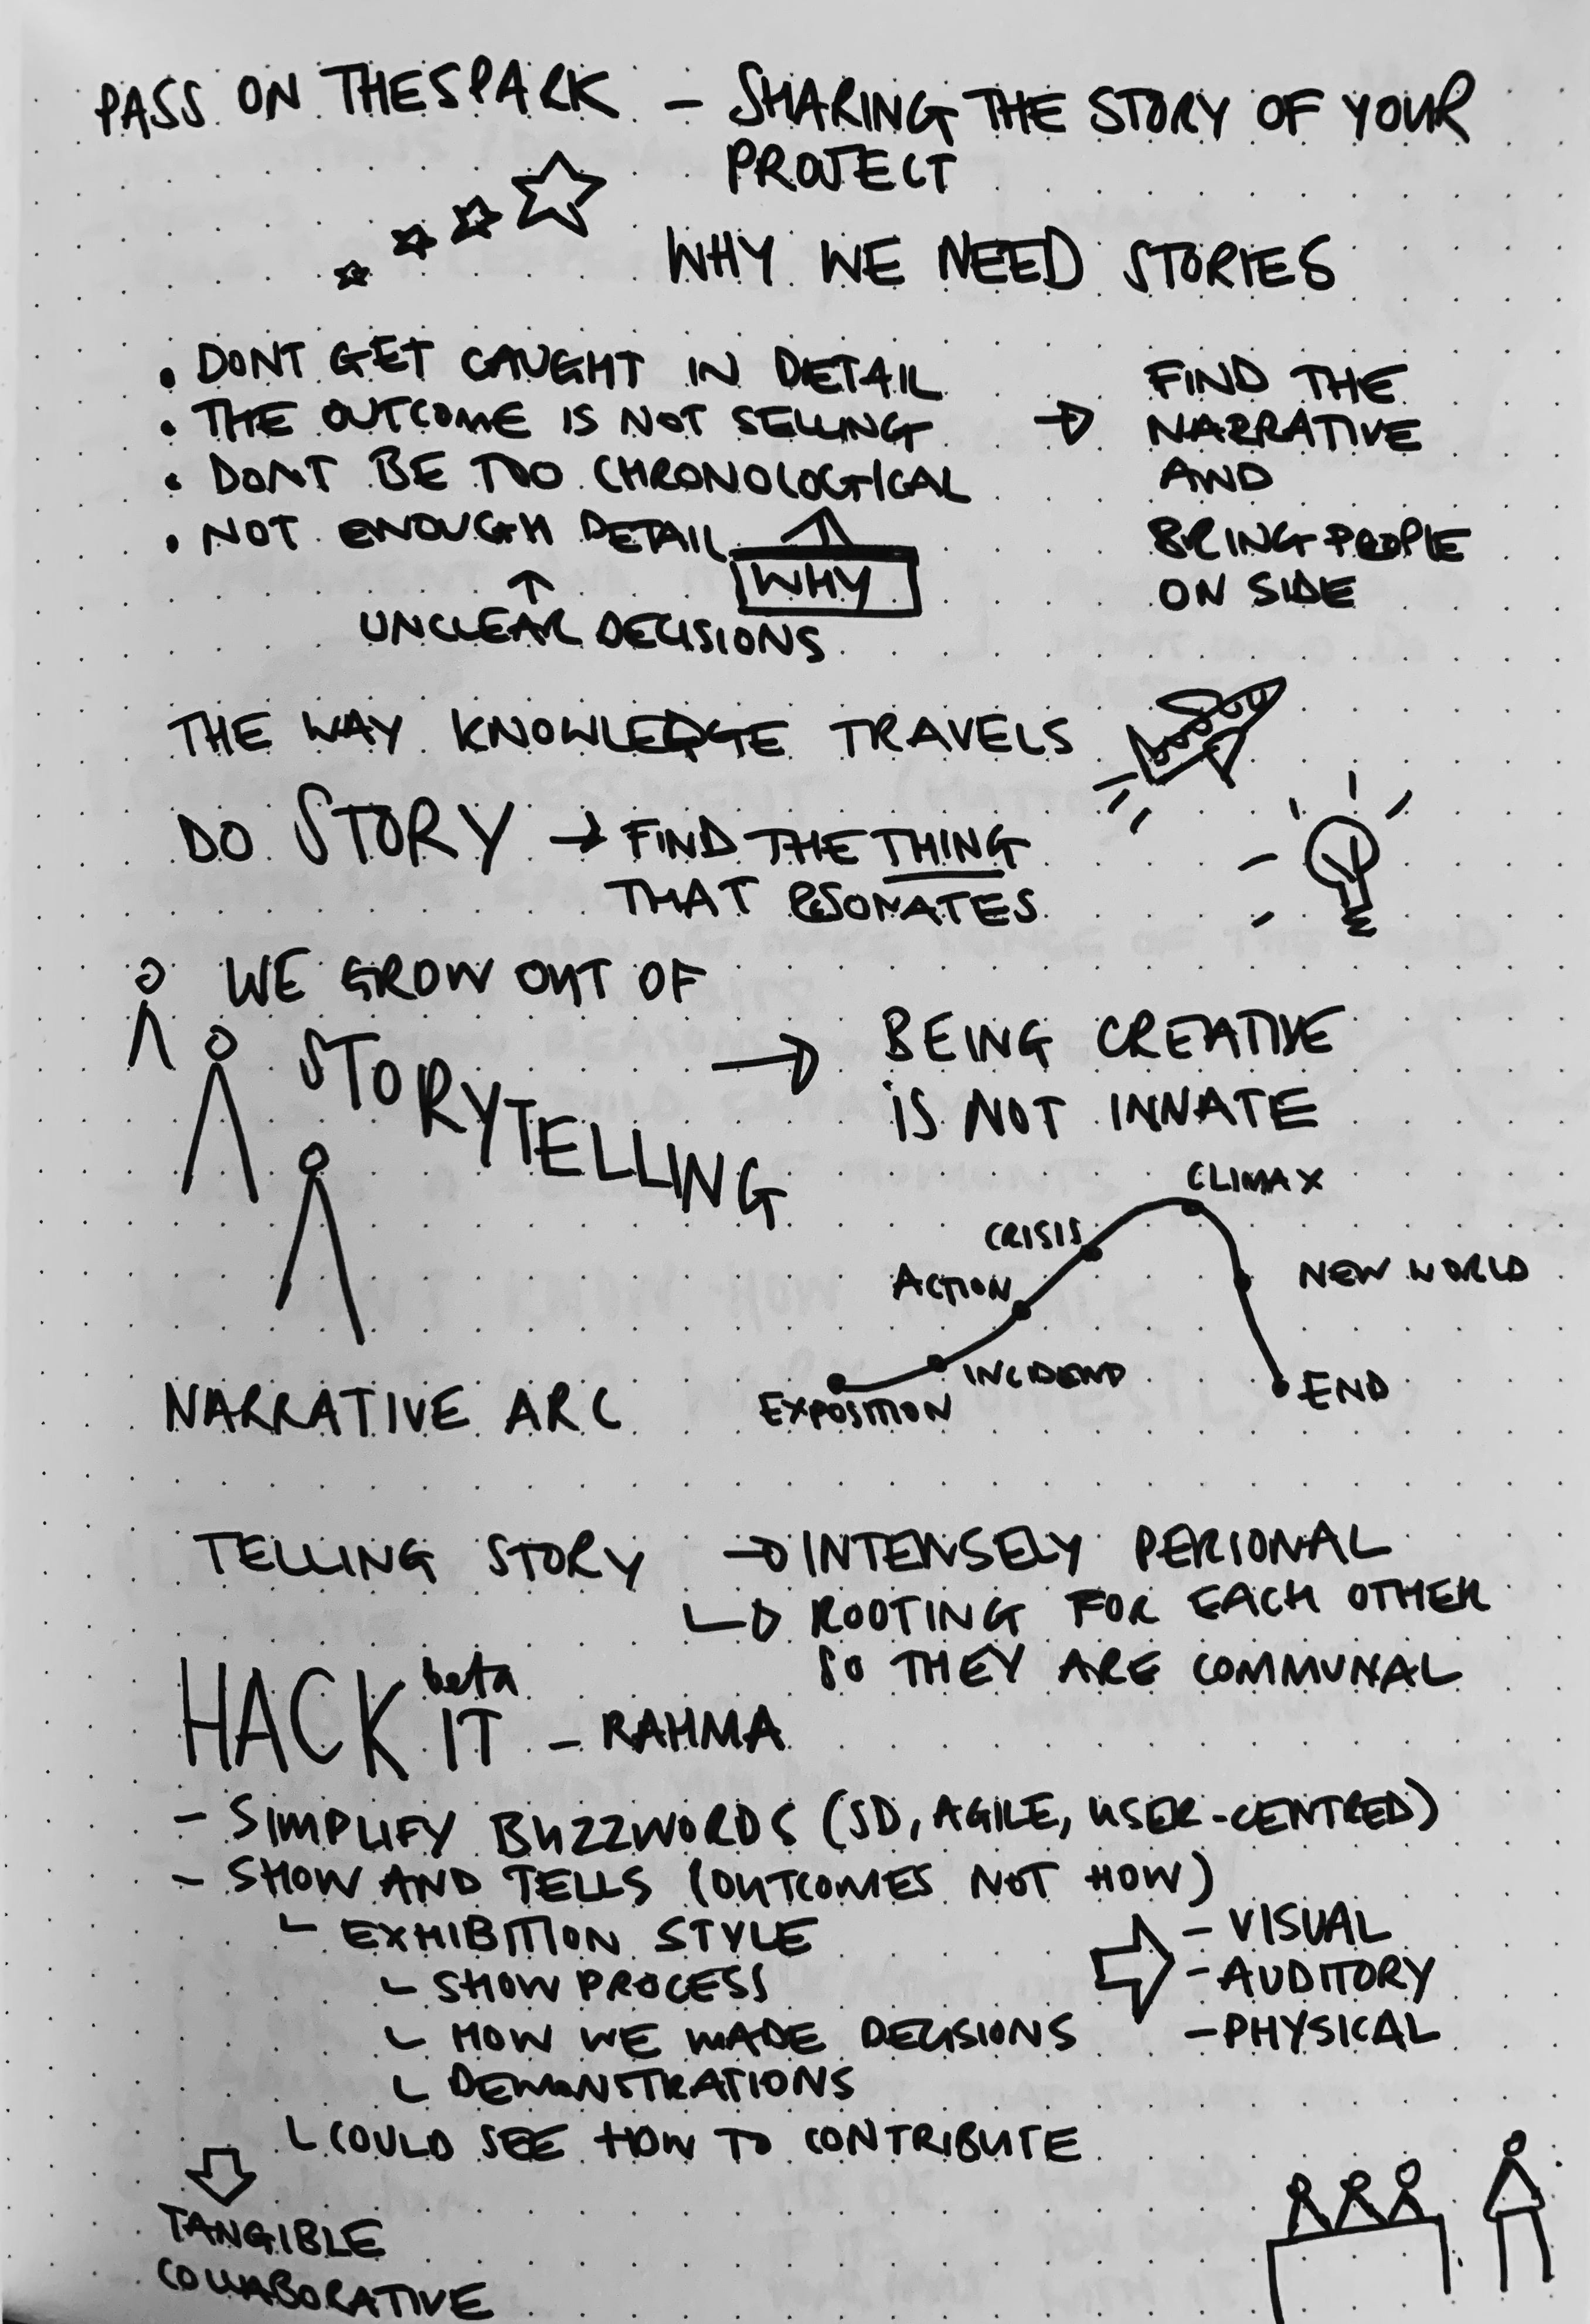 PASS ON THE SPARK – SHARING THE STORY OF YOUR
PROJECT
WHY WE NEED STORIES
• DONT GET CAUGHT IN DETAIL
• THE OUTCOME IS NOT SELLING
• DONT BE TOO CHRONOLOGICAL
• NOT ENOUGH DETAIL
WHY
↑
UNCLEAR DECISIONS
→ FIND THE
NARRATIVE
AND
BRING PEOPLE
ON SIDE
THE WAY KNOWLEDGE TRAVELS
DO STORY → FIND THE THING
THAT RESONATES
WE GROW OUT OF
STORYTELLING
→ BEING CREATIVE
IS NOT INNATE
NARRATIVE ARC
EXPOSITION
INCIDEND
ACTION
CRISIS
CLIMAX
NEW WORLD
END
TELLING STORY → INTENSELY PERSONAL
→ ROOTING FOR EACH OTHER
SO THEY ARE COMMUNAL
HACK IT beta – RAHMA
– SIMPLIFY BUZZWORDS (SD, AGILE, USER-CENTRED)
– SHOW AND TELLS (OUTCOMES NOT HOW)
└ EXHIBITION STYLE
└ SHOW PROCESS
└ HOW WE MADE DECISIONS
└ DEMONSTRATIONS
└ COULD SEE HOW TO CONTRIBUTE
⇒ – VISUAL
– AUDITORY
– PHYSICAL
TANGIBLE
COLLABORATIVE